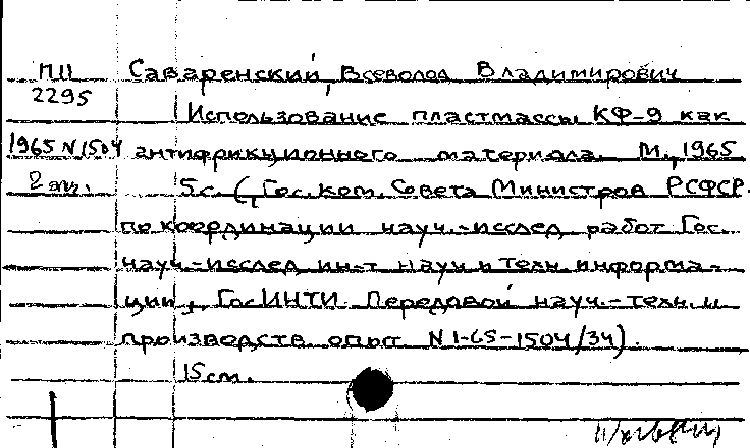 ПП Саваренский, Всеволод Владимирович
2295 Использование пластмассы КФ-9 как
1965 N 1504 антифрикционного материала. М., 1965
2 экз. 5 с. (Гос. ком. Совета Министров РСФСР
по координации науч.-исслед. работ Гос.
науч.-исслед. ин-т науч. и техн. информа-
ции, ГосИНТИ Передовой науч.-техн. и
производств. опыт N 1-65-1504/34).
15 см.